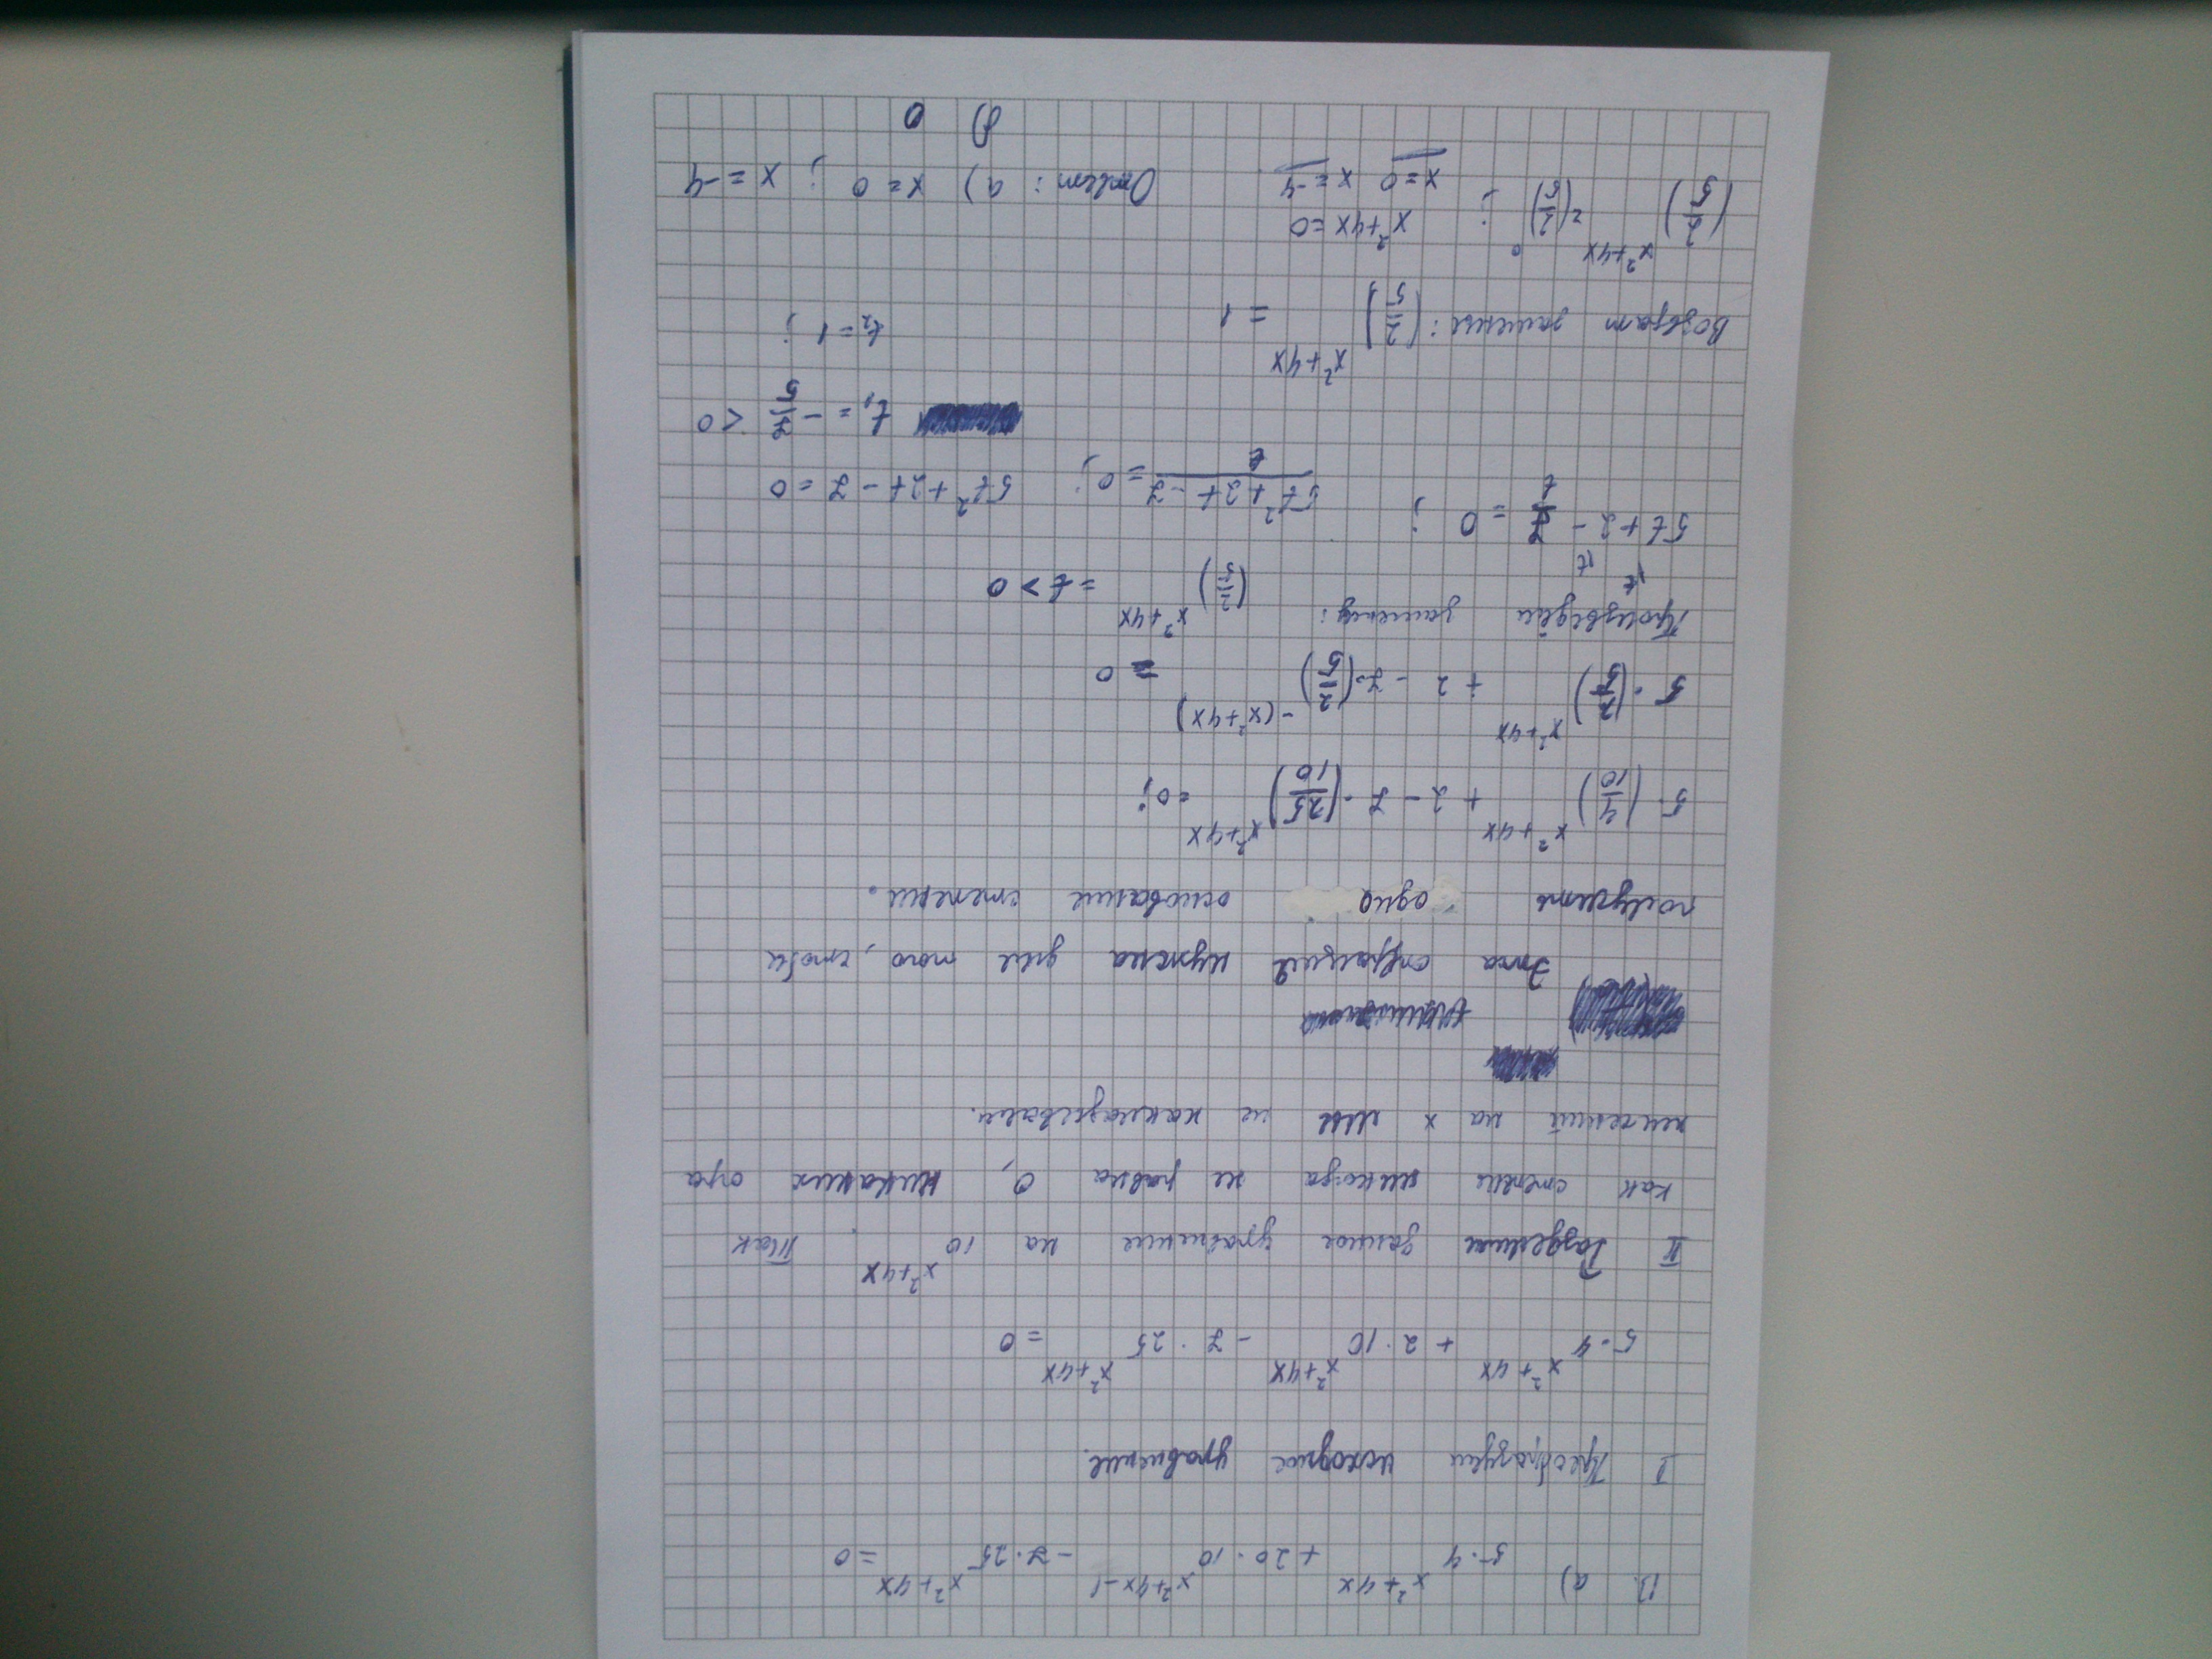 13. а) 5·4^(x²+4x) + 20·10^(x²+4x-1) - 7·25^(x²+4x) = 0
I Преобразуем исходное уравнение.
5·4^(x²+4x) + 2·10^(x²+4x) - 7·25^(x²+4x) = 0
II Разделим данное уравнение на 10^(x²+4x). Так
как степень никогда не равна 0, никаких огра
ничений на x мы не накладывали.
Эта операция нужна для того, чтобы
получить одно основание степени.
5·(4/10)^(x²+4x) + 2 - 7·(25/10)^(x²+4x) = 0;
5·(2/5)^(x²+4x) + 2 - 7·(2/5)^(-(x²+4x)) = 0
Произведём замену: (2/5)^(x²+4x) = t > 0
5t + 2 - 7/t = 0; (5t² + 2t - 7)/t = 0; 5t² + 2t - 7 = 0
t₁ = -7/5 < 0
t₂ = 1;
Возврат замены: (2/5)^(x²+4x) = 1
(2/5)^(x²+4x) = (2/5)^0; x²+4x=0
x=0 x=-4
Ответ: а) x = 0; x = -4
б) 0